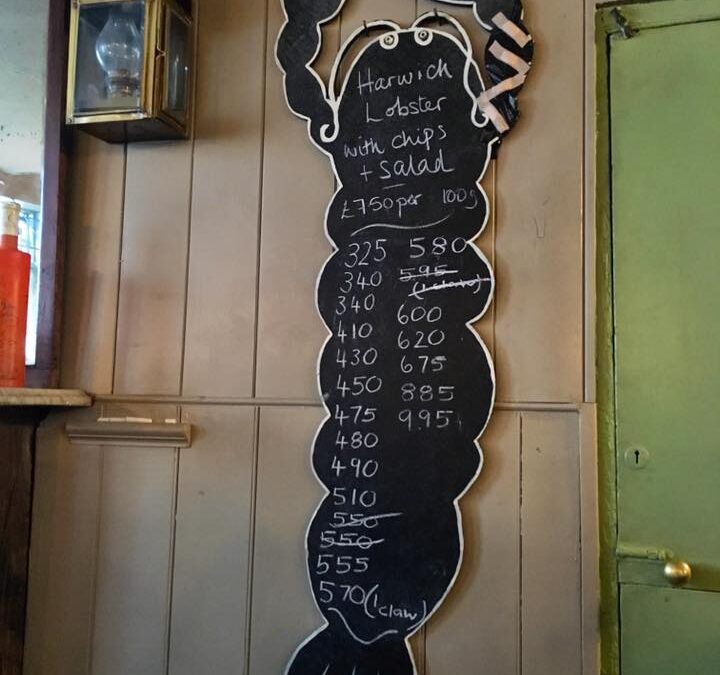 Harwick
Lobster
with chips
+ salad
£750per 100g
325
340
340
410
430
450
475
480
490
510
550
550
555
570 (1 claw)
580
595
(1 claw)
600
620
675
885
995